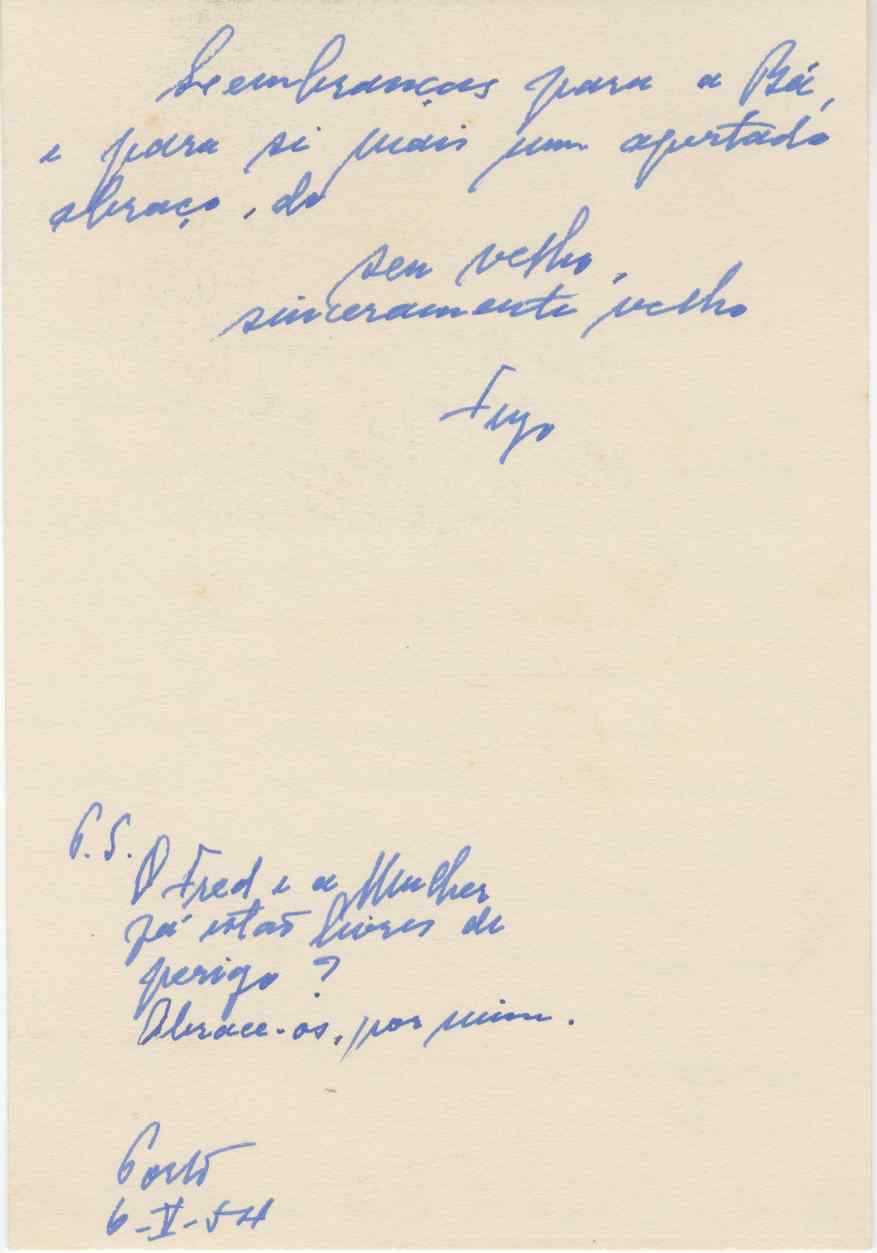 Lembranças para a Bá,
e para si mais um apertado
abraço, do
seu velho,
sinceramente velho
P.S.
O Fred e a Mulher
já estão livres de
perigo?
Abrace-os, por mim.
Porto
6-V-54